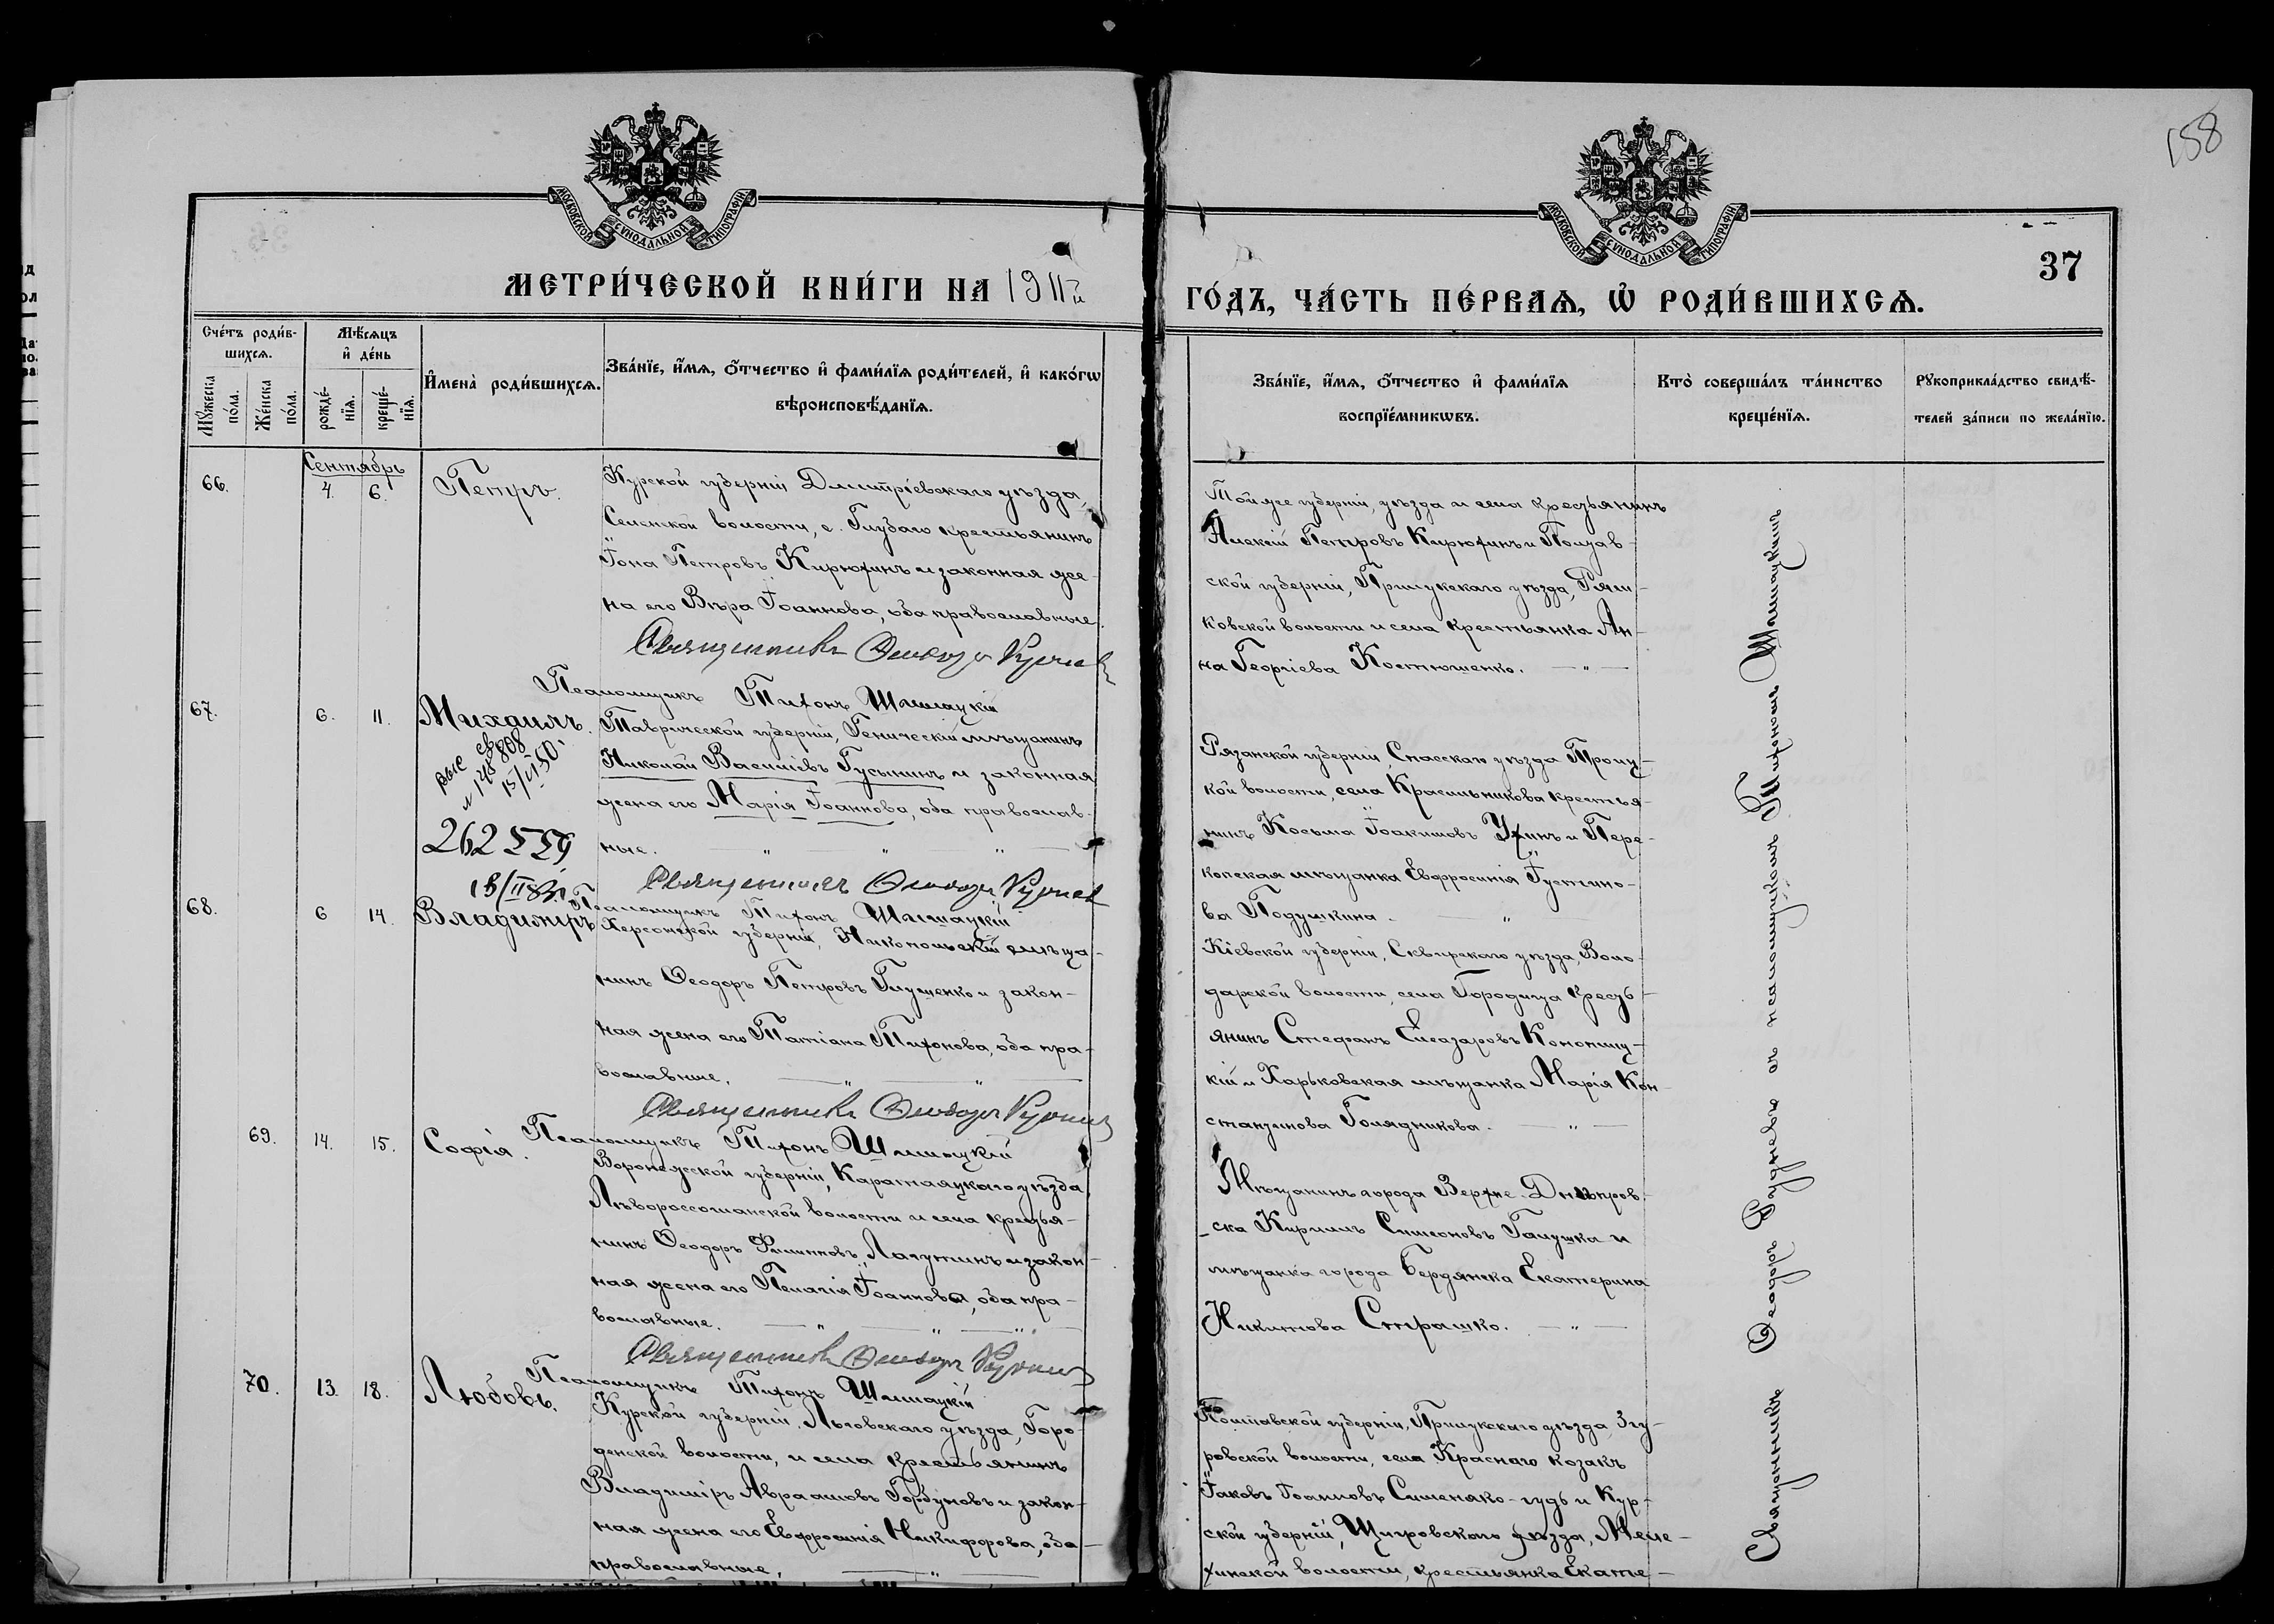 158
МОСКОВСКОЙ СѴНОДАЛЬНОЙ ТИПОГРАФІИ
МОСКОВСКОЙ СѴНОДАЛЬНОЙ ТИПОГРАФІИ
37
МЕТРИ́ЧЕСКОЙ КНИ́ГИ НА 1911й
ГО́ДЪ, ЧА́СТЬ ПЕ́РВАѦ, Ѡ҆ РОДИ́ВШИХСѦ.
Сче́тъ роди́в-
шихсѧ.
Мѣ́сѧцъ
и҆ де́нь
Мꙋ́жеска по́ла.
Же́нска по́ла.
рожде́-
нїѧ.
креще́-
нїѧ.
И҆мена̀ роди́вшихсѧ.
Зва́нїе, и҆́мѧ, ѻ҆́тчество и҆ фами́лїѧ роди́телей, и҆ како́гѡ
вѣроисповѣ́данїѧ.
Зва́нїе, и҆́мѧ, ѻ҆́тчество и҆ фами́лїѧ
воспрїе́мникѡвъ.
Кто̀ соверша́лъ та́инство
креще́нїѧ.
Рꙋкоприкла́дство свидѣ́-
телей за́писи по жела́нїю.
Сентябрь
66. 4. 6. Петръ.
Курской губерніи Дмитріевскаго уѣзда,
Селенской волости, с. Глубаго крестьянинъ
Іона Петровъ Кирюхинъ и законная же-
на его Вѣра Іоаннова, оба православные.
Священникъ Ѳеодоръ
Псаломщикъ Тихонъ Шишацкій
Той же губерніи, уѣзда и села крестьянинъ
Алексій Петровъ Кирюхинъ и Полтав-
ской губерніи, Прилукскаго уѣзда, Ряш-
ковской волости и села крестьянка Ан-
на Георгіева Костюшенко. — " —
67. 6. 11. Михаилъ.
262559
Таврической губерніи, Геническій мѣщанинъ
Николай Василіевъ Гусынинъ и законная
жена его Марія Іоаннова, оба православ-
ные. — " — " — " —
Священникъ Ѳеодоръ
Псаломщикъ Тихонъ Шишацкій
Рязанской губерніи, Спасскаго уѣзда Троиц-
кой волости, села Красильникова крестья-
нинъ Косьма Іоакимовъ Ухинъ и Пере-
копская мѣщанка Евфросинія Іустино-
ва Подушкина. — " —
68. 6 14. Владиміръ
Херсонской губерніи, Никопольскій мѣща-
нинъ Ѳеодоръ Петровъ Глущенко и закон-
ная жена его Татіана Тихонова, оба пра-
вославные. — " — " —
Священникъ Ѳеодоръ
Псаломщикъ Тихонъ Шишацкій
Кіевской губерніи, Сквирскаго уѣзда, Воло-
дарской волости, села Городища кресть-
янинъ Стефанъ Елеазаровъ
кій и Харьковская мѣщанка Марія Кон-
стантинова Голядникова. — " —
69. 14. 15. Софія.
Воронежской губерніи, Коротоякскаго уѣзда,
Лѣвороссошанской волости и села крестья-
нинъ Ѳеодоръ Филипповъ Лагутинъ и закон-
ная жена его Пелагія Іоаннова, оба пра-
вославные. — " — " — " —
Священникъ Ѳеодоръ
Псаломщикъ Тихонъ Шишацкій
Мѣщанинъ города Верхне-Днѣпров-
ска Кириллъ Симеоновъ Галушка и
мѣщанка города Бердянска Екатерина
Никитова Страшко. — " —
70. 13. 18. Любовь.
Курской губерніи, Льговскаго уѣзда, Горо-
денской волости, и села крестьянинъ
Владиміръ Авраамовъ Горбуновъ и закон-
ная жена его Евфросинія Никифорова, оба
православные, — " —
Полтавской губерніи, Прилукскаго уѣзда, Згу-
ровской волости, села Краснаго козакъ
Іаковъ Іоанновъ и Кур-
ской губерніи, Щигровскаго уѣзда, Меле-
хинской волости, крестьянка Екате-
Священникъ Ѳеодоръ Рудневъ съ псаломщикомъ Тихономъ Шишацкимъ